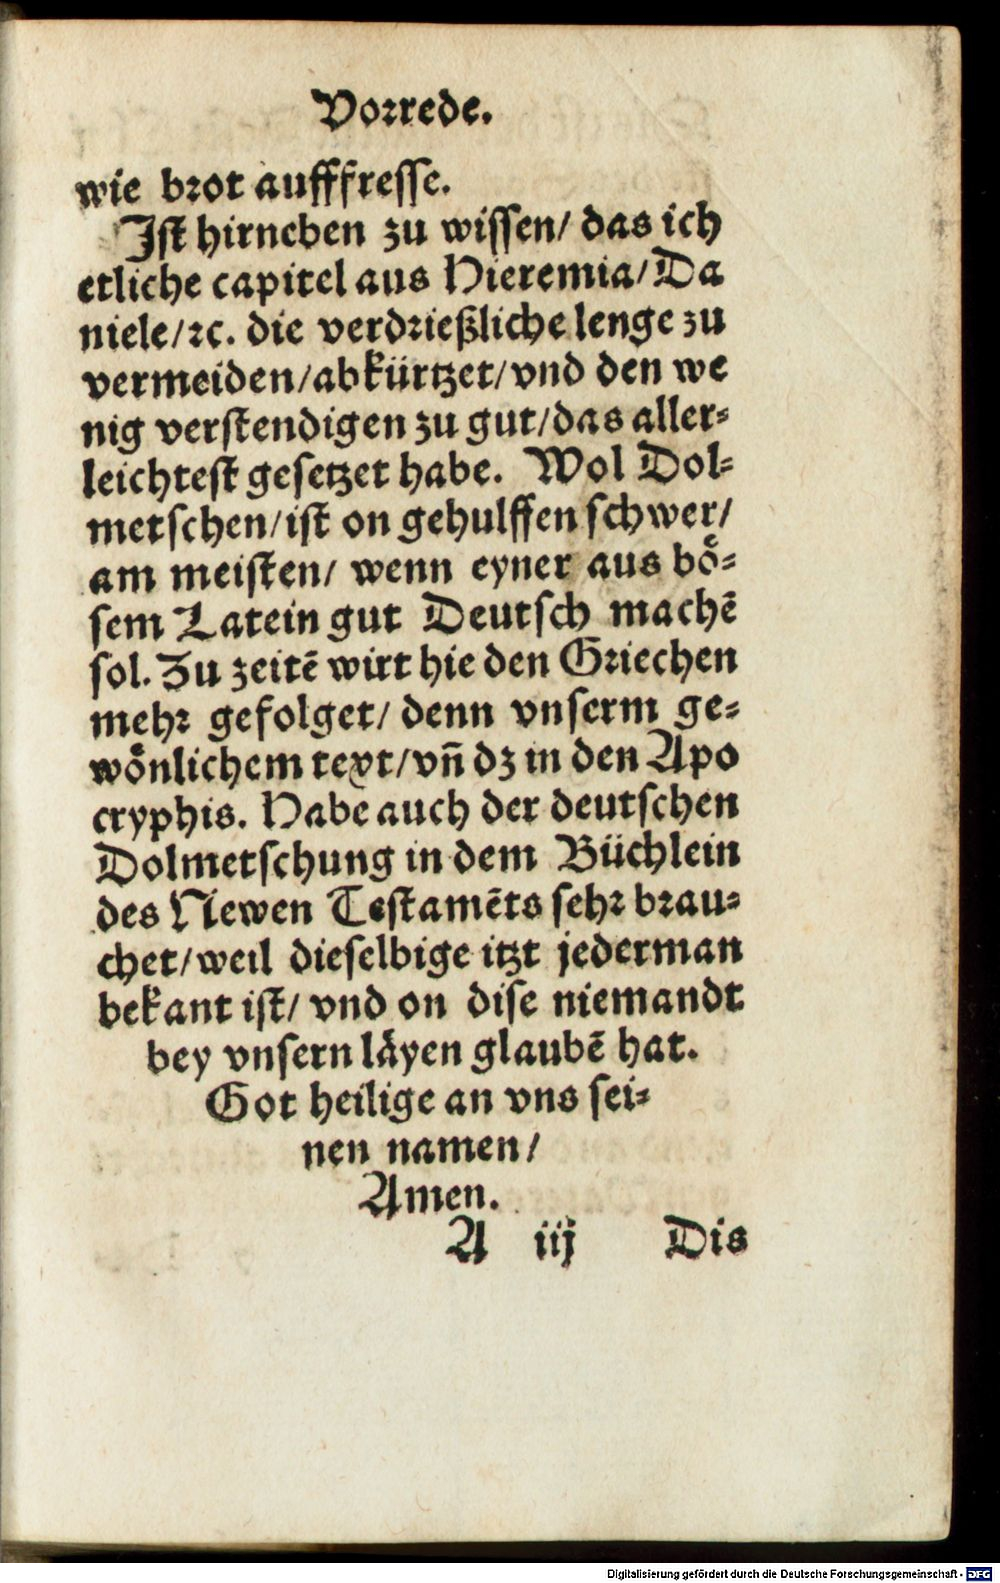 Vorrede.
wie brot aufffresse.
Jst hirneben zu wissen/ das ich
etliche capitel aus Hieremia/Da
niele/ꝛc. die verdrießliche lenge zu
vermeiden/abkürtzet/vnd den we
nig verstendigen zu gut/das aller-
leichtest gesetzet habe. Wol Dol-
metschen/ist on gehulffen schwer/
am meisten/ wenn eyner aus boͤ-
sem Latein gut Deutsch machē
sol. Zu zeitē wirt hie den Griechen
mehr gefolget/ denn vnserm ge-
woͤnlichem text/vn̄ dz in den Apo
cryphis. Habe auch der deutschen
Dolmetschung in dem Büchlein
des Newen Testamēts sehr brau-
chet/weil dieselbige itzt jederman
bekant ist/ vnd on dise niemandt
bey vnsern laͤyen glaubē hat.
Got heilige an vns sei-
nen namen/
Amen.
A iij Dis
Digitalisierung gefördert durch die Deutsche Forschungsgemeinschaft - DFG